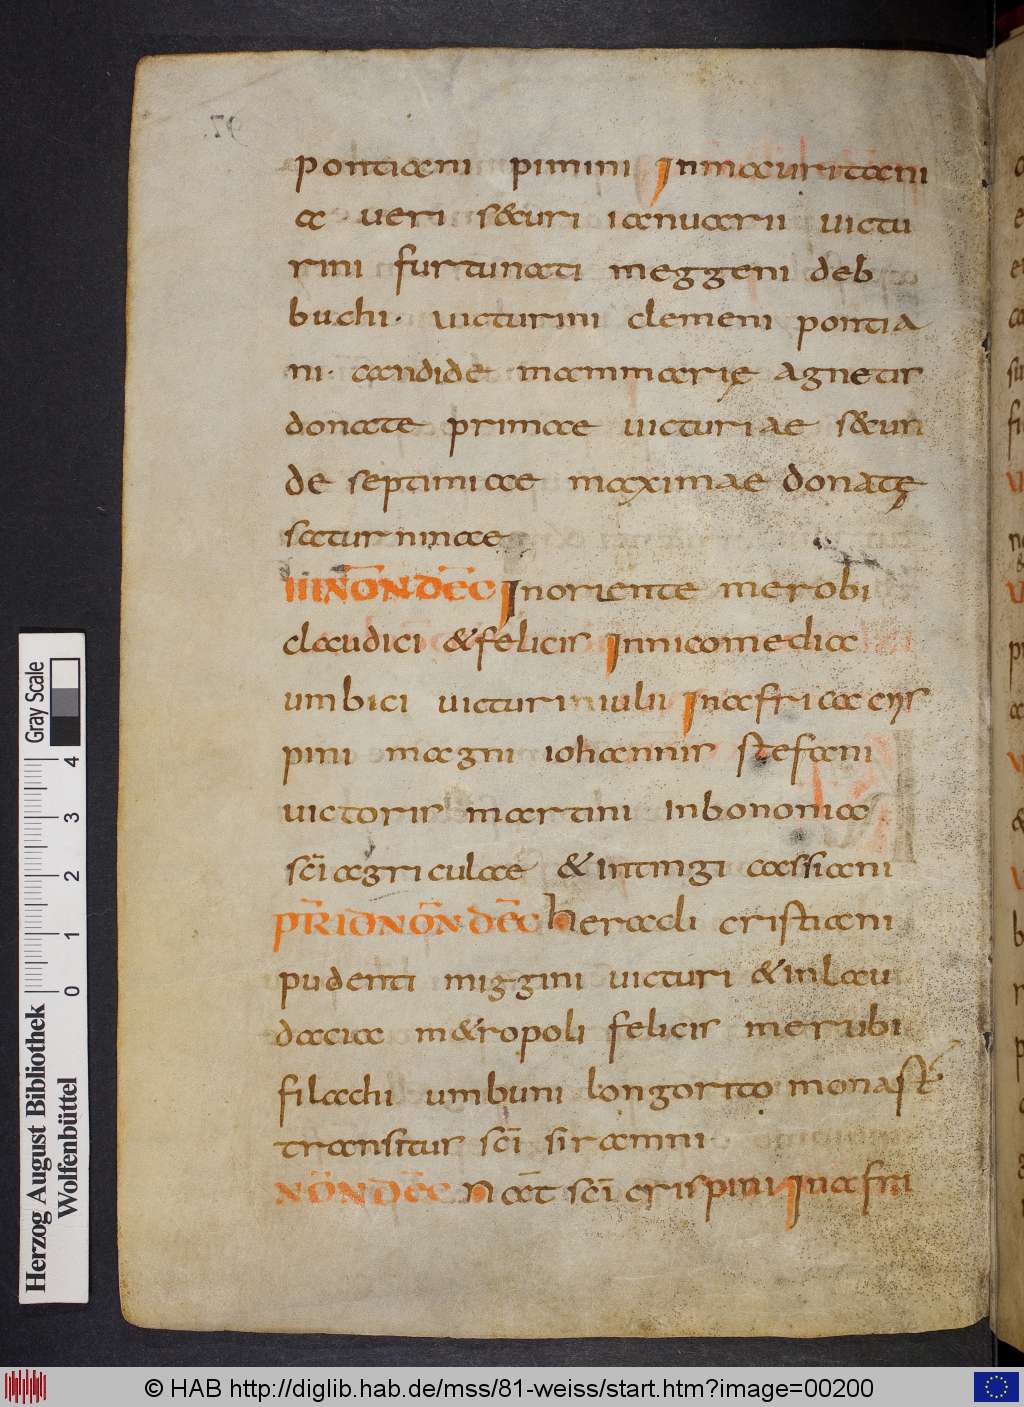 97.
pontiani pimini Inmauritani
a ueri s&uri ianuarii uictu
rini furtunati meggeni deb
buchi· uicturini clemeni pontia
ni· candide mammarię agnetis
donate primae uicturiae s&un
de septimiae maximae donatę
saturninae
IIII NON DEC Inoriente merobi
claudici &felicis Innicomedia
umbici uicturini iulii Inafrica cyr
pini magni iohannis stefani
uictoris martini Inbononia
sci agriculae &intingi cassiani
PRID NON DEC heracli cristiani
pudenti miggini uicturi &inlau
dacia m&ropoli felicis merubi
filachi umbuni longorito monast
transitus sci siramni·
NON DEC Nat sci crispini Inafri
Gray Scale
0 1 2 3 4
Herzog August Bibliothek
Wolfenbüttel
© HAB http://diglib.hab.de/mss/81-weiss/start.htm?image=00200